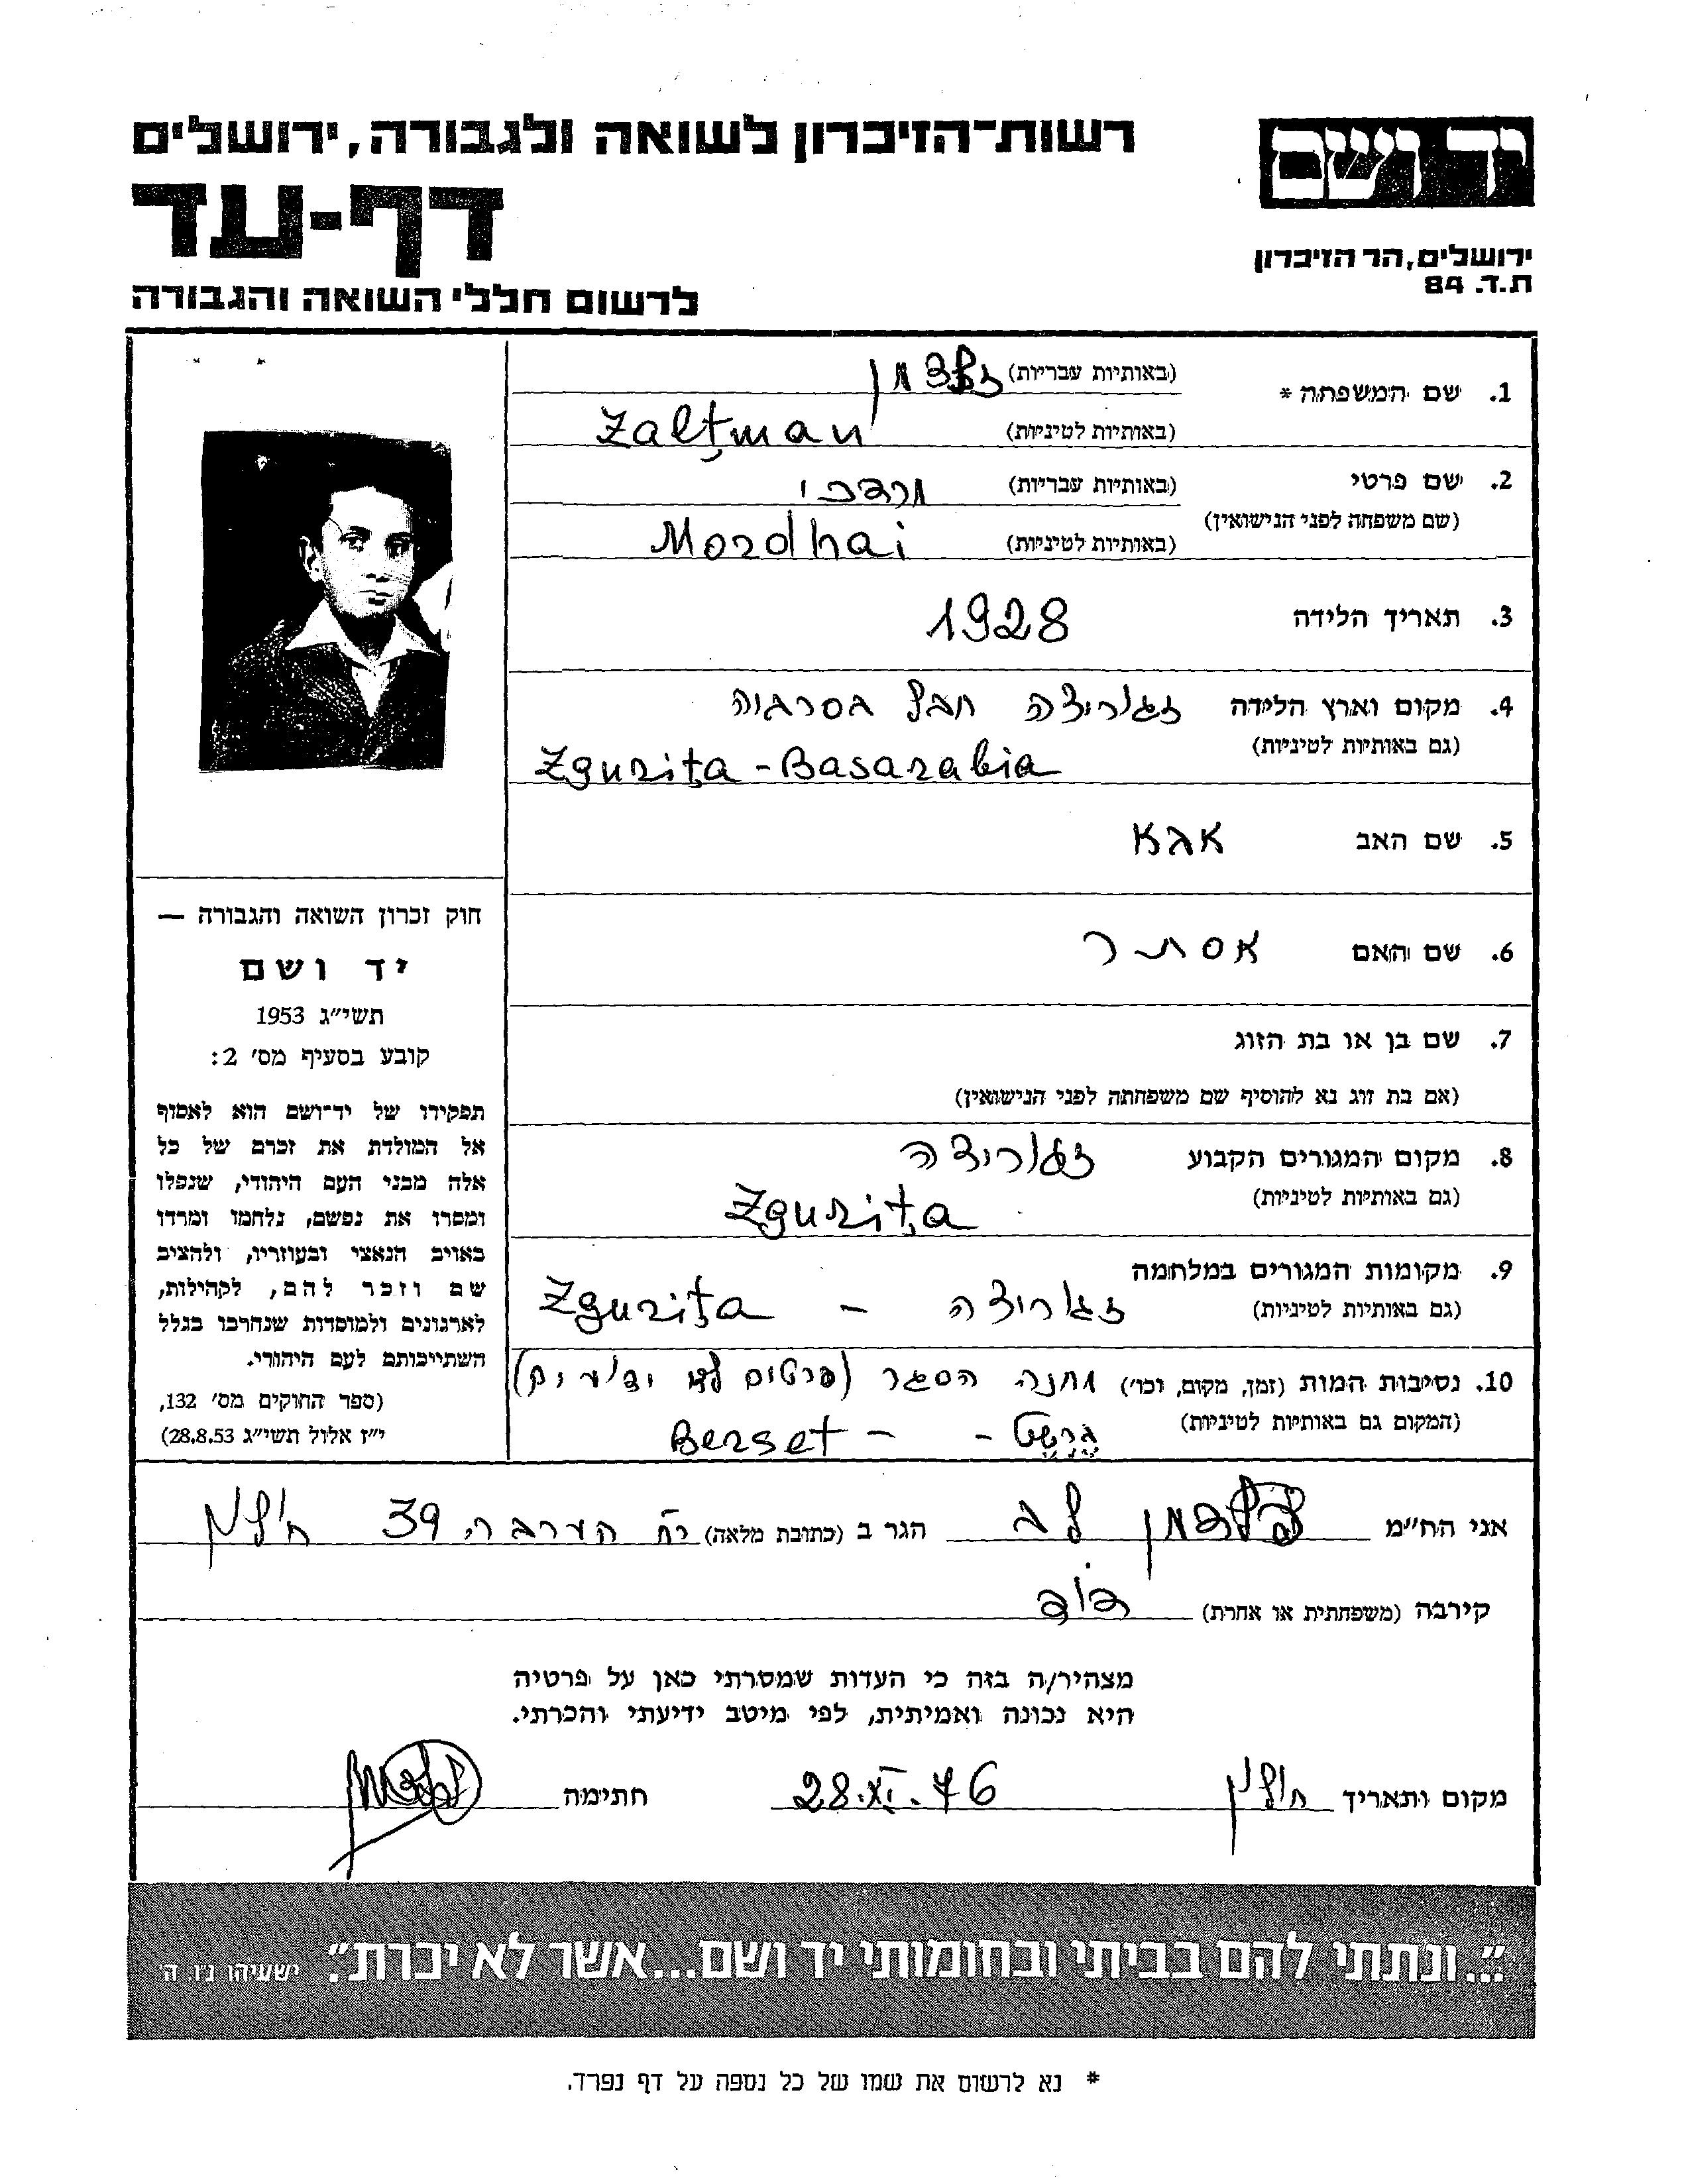 רשות־הזיכרון לשואה ולגבורה, ירושלים
יד ושם
דף-עד
ירושלים, הר הזיכרון
ת.ד. 84
לרשום חללי השואה והגבורה
1. שם המשפחה * (באותיות עבריות) זלצמן
(באותיות לטיניות) Zalțman
2. שם פרטי (באותיות עבריות) מרדכי
(שם משפחה לפני הנישואין)
(באותיות לטיניות) Mordhai
3. תאריך הלידה 1928
4. מקום וארץ הלידה זגוריצה חבל בסרביה
(גם באותיות לטיניות) Zgurița - Basarabia
5. שם האב אבא
6. שם האם אסתר
7. שם בן או בת הזוג
(אם בת זוג נא להוסיף שם משפחתה לפני הנישואין)
8. מקום המגורים הקבוע זגוריצה
(גם באותיות לטיניות) Zgurița
9. מקומות המגורים במלחמה
(גם באותיות לטיניות) זגוריצה - Zgurița
10. נסיבות המות (זמן, מקום, וכו') מחנה הסגר (פרטים לא ידועים)
(המקום גם באותיות לטיניות) ברשט - - Berset
חוק זכרון השואה והגבורה —
יד ושם
תשי״ג 1953
קובע בסעיף מס׳ 2:
תפקידו של יד־ושם הוא לאסוף
אל המולדת את זכרם של כל
אלה מבני העם היהודי, שנפלו
ומסרו את נפשם, נלחמו ומרדו
באויב הנאצי ובעוזריו, ולהציב
שם וזכר להם, לקהילות,
לארגונים ולמוסדות שנחרבו בגלל
השתייכותם לעם היהודי.
(ספר החוקים מס׳ 132,
י״ז אלול תשי״ג 28.8.53)
אני הח״מ זלצמן לב הגר ב (כתובת מלאה) רח הערבה 39 חולון
קירבה (משפחתית או אחרת) דוד
מצהיר/ה בזה כי העדות שמסרתי כאן על פרטיה
היא נכונה ואמיתית, לפי מיטב ידיעתי והכרתי.
מקום ותאריך חולון 28.XI.76 חתימה
״...ונתתי להם בביתי ובחומותי יד ושם...אשר לא יכרת״. ישעיהו נ״ו, ה׳
* נא לרשום את שמו של כל נספה על דף נפרד.